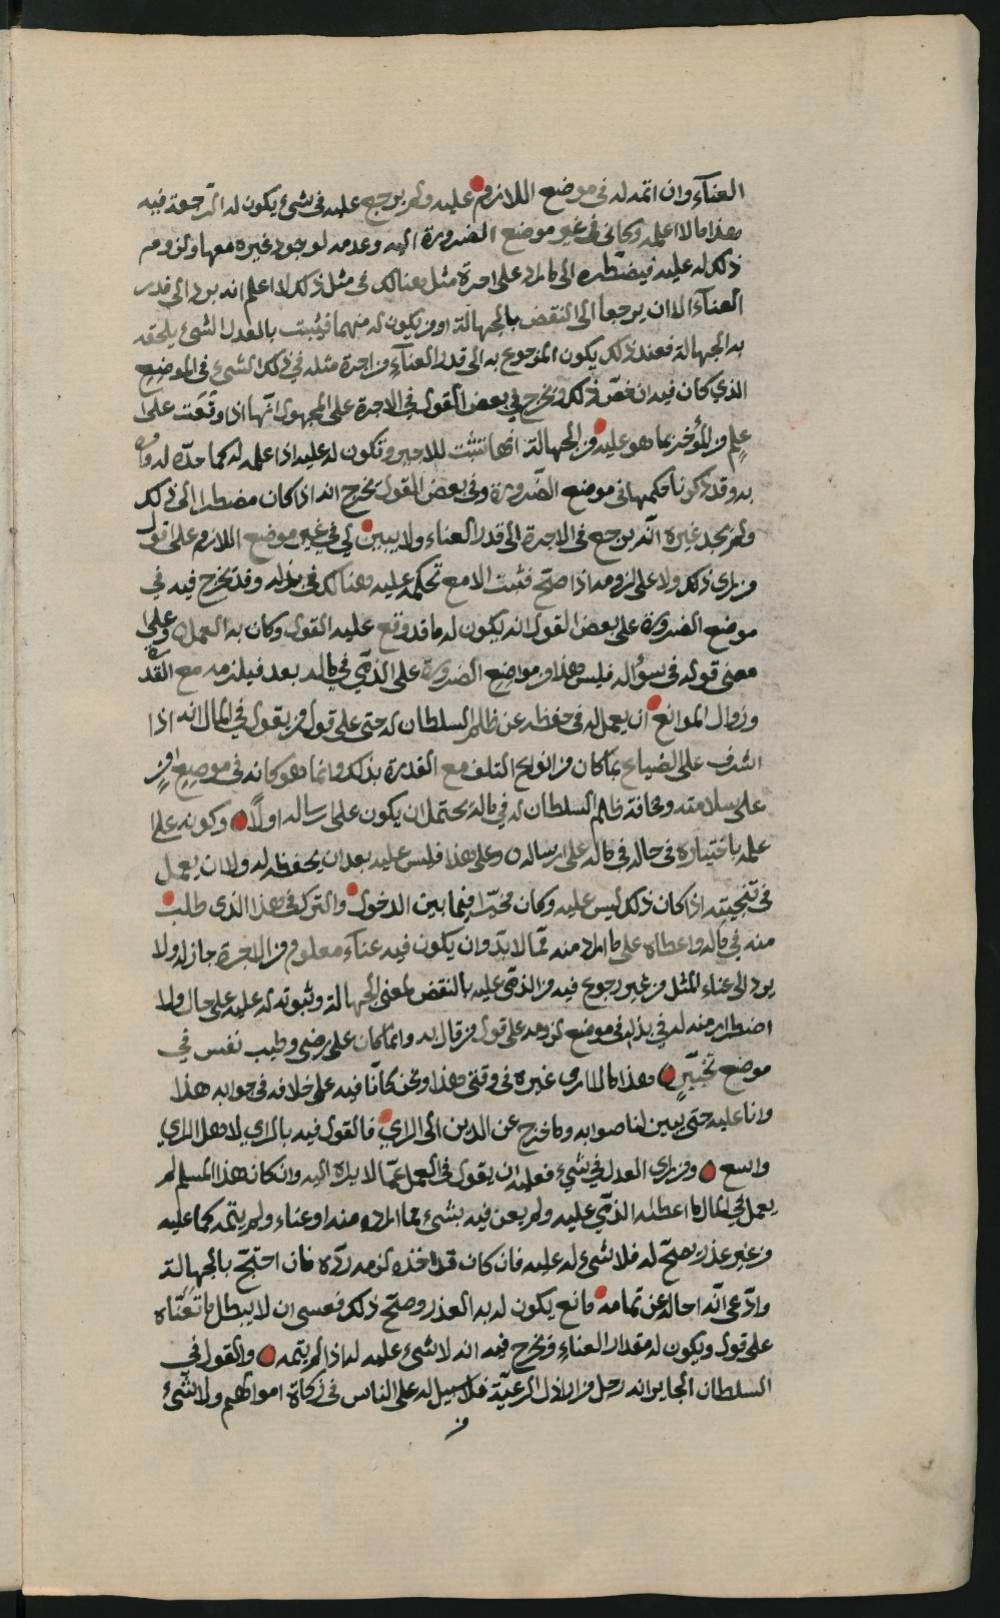 العنآء وان اتمه له في موضع اللازم عليه ولم يرجع عليه في شيء يكون له الرجعة فيه
هذا ما لا اعلمه وكاني في غير موضع الضرورة اليه وعدمه لوجود غيره معها ولزومه
ذلك له عليه فيضطره الى ما اراد على اجرة مثل هنالك في مثل ذلك لا اعلم انه يرد الى قدر
العنآء الا ان يرجعا الى النقض بالجهالة او من يكون له منهما فيثبت بالعدل لشيء يلحقه
به الجهالة فعند ذلك يكون المرجوع به الى قدر العنآء من اجرة مثله في ذلك الشيء في الموضع
الذي كان فيه ان نقض ذلك ويخرج في بعض القول في الاجرة على المجهول انها اذا وقعت على
علم من المؤخذ بما هو عليه من الجهالة انها تثبت للاجير وتكون له عليه اذا علمه له كما حده له
به وقد ذكرنا حكمها في موضع الضرورة وفي بعض القول يخرج انه اذا كان مضطرا الى ذلك
ولم يجد غيره انه يرجع في الاجرة الى قدر العناء ولا يبين لي في غير موضع اللازم على قول
من يرى ذلك ولا على لزومه اذا صح فثبت الا مع تحكمه عليه هنالك في بذله وقد يخرج فيه في
موضع الضرورة على بعض القول انه يكون له ما قد وقع عليه القول وكان به العمل وعلى
معنى قوله في سؤاله فليس هذا من مواضع الضرورة على الذمي في ماله بعد فيلزمه مع القدرة
وزوال الموانع ان يعمل له في حفظه عن ظلم السلطان له حتى على قول من يقول في المال انه اذا
اشرف على الضياع بما كان من انواع التلف مع القدرة بذلك وانما هو كانه في موضع امن
على سلامته ومخافة ظلم السلطان له في ماله يحتمل ان يكون على رساله اولا وكونه على
علمه باختياره في حاله في ماله على ارساله وعلى هذا فليس عليه بعد ان يحفظه له ولا ان يعمل
في تنجيته اذا كان ذلك ليس عليه وكان مخيرا فيما بين الدخول والترك في هذا الذي طلب
منه في ماله واعطاه على ما اراد منه مما لا بد وان يكون فيه عنآء معلوم من الاجرة جاز له ولا
يرد الى عناء المثل من غير رجوع فيه من الذمي عليه بالنقض لمعنى الجهالة وثبوته له عليه على حال ولا
اضطرار منه له في بذله في موضع لزومه على قول من قال به وانما كان على رضى وطيب نفس في
موضع تخيير وهذا ما لم ار غيره في وقتي هذا ونحن كانا فيه على خلافه في جوابه هذا
وانا عليه حتى يبين لنا صوابه وما خرج عن الدين الى الراي فالقول فيه بالراي لاهل الراي
واسع ومن يرى العدل في شيء فعليه ان يقول في العمل عما لا يراه اليه وان كان هذا المسلم لم
يعمل في المال ما اعطاه الذمي عليه ولم يعن فيه بشيء مما اراده منه او عناء ولم يتمه كما عليه
من غير عذر يصح له فلا شيء له عليه فان كان قد اخذه لزمه رده فان احتج بالجهالة
وادعى انه احاله عن تمامه مانع يكون له به العذر وصح ذلك فعسى ان لا يبطل ما تعناه
على قول ويكون له مقدار العناء ويخرج فيه انه لا شيء عليه له اذا لم يتمه والقول في
السلطان الجاير انه رجل من اراذل الرعية فلا سبيل له على الناس في زكاة اموالهم ولا لشيء
من